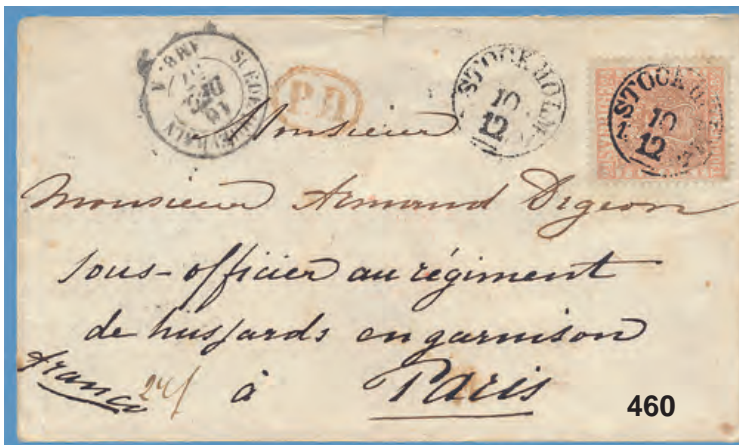 P.D
STOCKHOLM
10
12
STOCKHOLM
10
12
Monsieur
Monsieur Armand Digeon
sous-officier au régiment
de hussards en garnison
franco à Paris
460